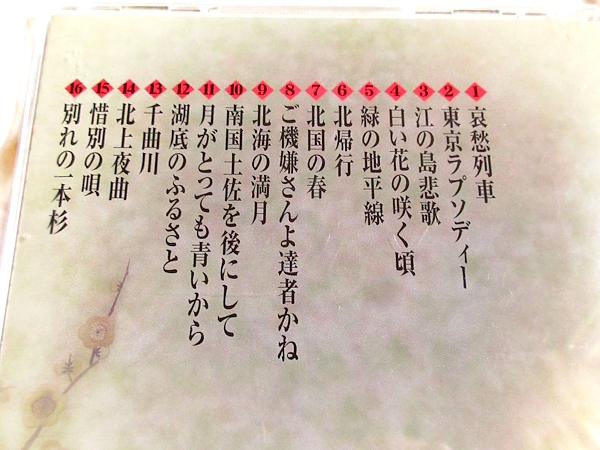 1 哀愁列車
2 東京ラプソディー
3 江の島悲歌
4 白い花の咲く頃
5 緑の地平線
6 北帰行
7 北国の春
8 ご機嫌さんよ達者かね
9 北海の満月
10 南国土佐を後にして
11 月がとっても青いから
12 湖底のふるさと
13 千曲川
14 北上夜曲
15 惜別の唄
16 別れの一本杉